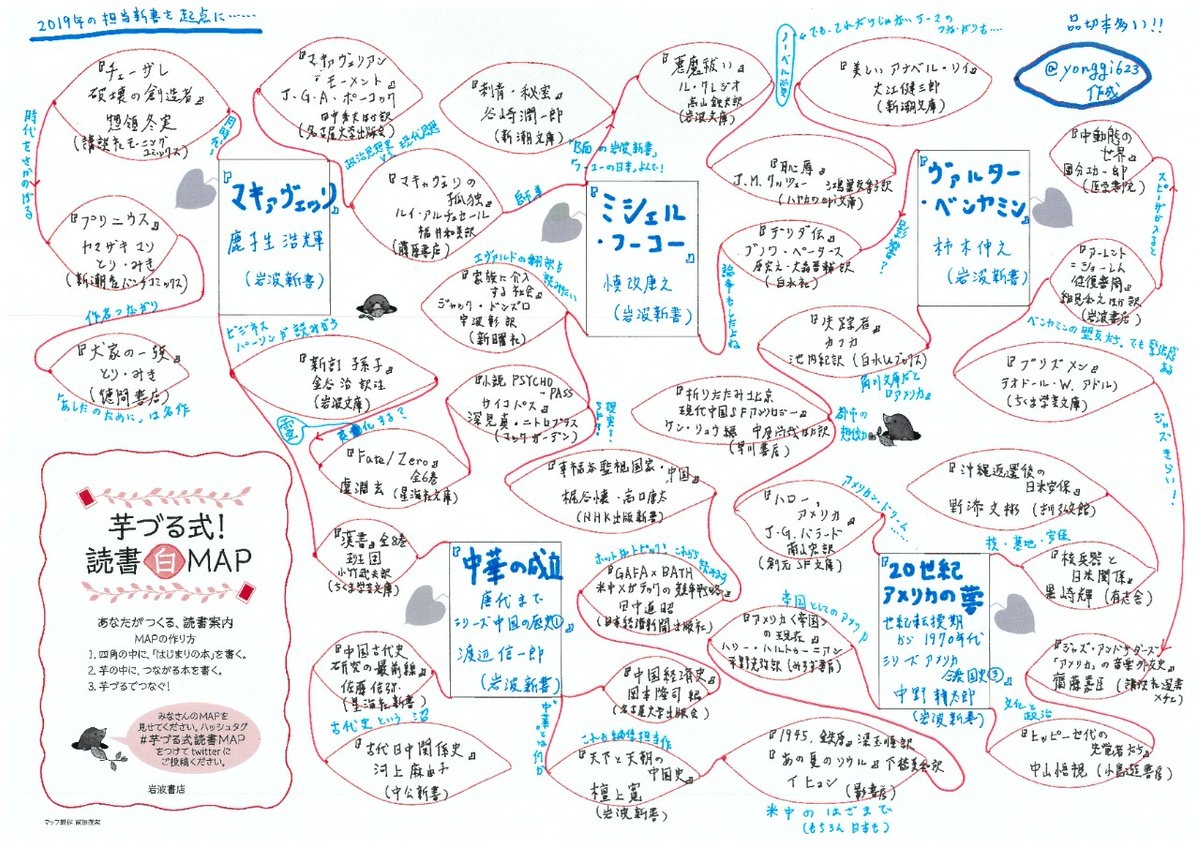 2019年の担当新書を起点に……
品切本多い!!
@yonggi623
作成
『チェーザレ
破壊の創造者』
惣領冬実
(講談社モーニング
コミックス)
時代をさかのぼる
同時代
『プリニウス』
ヤマザキマリ
とり・みき
(新潮社バンチコミックス)
作者つながり
『犬家の一族』
とり・みき
(徳間書店)
「あしたのために」は名作
『マキァヴェリアン
・モーメント』
J.G.A.ポーコック
田中秀夫ほか訳
(名古屋大学出版会)
政治思想史
vs 現代思想
『マキァヴェッリ』
鹿子生浩輝
(岩波新書)
『マキャヴェリの
孤独』
ルイ・アルチュセール
福井和美訳
(藤原書店)
師弟
『刺青・秘密』
谷崎潤一郎
(新潮文庫)
「B面の岩波新書」
「フーコーの日本」よんで!
『ミシェル
・フーコー』
慎改康之
(岩波新書)
エヴァルドの翻訳も
読みたい
『家族に介入
する社会』
ジャック・ドンズロ
宇波彰訳
(新曜社)
『悪魔祓い』
ル・クレジオ
高山鉄男訳
(岩波文庫)
ノーベル文学賞
『美しいアナベル・リイ』
大江健三郎
(新潮文庫)
『恥辱』
J.M.クッツェー 鴻巣友季子訳
(ハヤカワepi文庫)
『デリダ伝』
ブノワ・ペータース
原宏之・大森晋輔訳
(白水社)
論争もしたよね
影響?
『ヴァルター
・ベンヤミン』
柿木伸之
(岩波新書)
『中動態の
世界』
國分功一郎
(医学書院)
『アーレント
=ショーレム
往復書簡』
細見和之ほか訳
(岩波書店)
ベンヤミンの盟友たち。でも緊張感ある
『プリズメン』
テオドール・W.アドルノ
(ちくま学芸文庫)
ジャズぎらい!
『失踪者』
カフカ
池内紀訳(白水uブックス)
角川文庫だと
『アメリカ』
ビジネス
パーソンが読みがち
『新訂 孫子』
金谷治訳注
(岩波文庫)
英霊化する?
『Fate/Zero』
全6巻
虚淵玄(星海社文庫)
『小説 PSYCHO
-PASS
サイコパス』
深見真・ニトロプラス
(マッグガーデン)
現実?
SF?
『折りたたみ北京
現代中国SFアンソロジー』
ケン・リュウ編 中原尚哉ほか訳
(早川書房)
都市の
想像力
『幸福な監視国家・中国』
梶谷懐・高口康太
(NHK出版新書)
『ハロー、
アメリカ』
J.G.バラード
南山宏訳
(創元SF文庫)
アメリカン・ドリーム……
『沖縄返還後の
日米安保』
野添文彬(吉川弘文館)
核・基地・安保
『核兵器と
日米関係』
黒崎輝(有志舎)
『漢書』全8巻
班固
小竹武夫訳
(ちくま学芸文庫)
『中華の成立
唐代まで
シリーズ中国の歴史①』
渡辺信一郎
(岩波新書)
ホットなトピック! これから読みます
『GAFA×BATH
米中メガテックの競争戦略』
田中道昭
(日本経済新聞出版社)
帝国としてのアメリカ
『アメリカ〈帝国〉
の現在』
ハリー・ハルトゥーニアン
平野克弥訳(みすず書房)
『20世紀
アメリカの夢
世紀転換期
から1970年代
シリーズアメリカ
合衆国史③』
中野耕太郎
(岩波新書)
『ジャズ・アンバサダーズ
「アメリカ」の音楽外交史』
齋藤嘉臣(講談社選書
メチエ)
文化と
政治
『ヒッピー世代の
先覚者たち』
中山悟視(小鳥遊書房)
『中国古代史
研究の最前線』
佐藤信弥
(星海社新書)
古代史という沼
『古代日中関係史』
河上麻由子
(中公新書)
『中国経済史』
岡本隆司編
(名古屋大学出版会)
"中華"とは何か
これも編集担当作
『天下と天朝の
中国史』
檀上寛
(岩波新書)
『1945,鉄原』 梁玉順訳
『あの夏のソウル』 下橋美和訳
イヒョン
(影書房)
米中のはざまで
(もちろん日本も)
芋づる式!
読書 MAP
あなたがつくる、読書案内
MAPの作り方
1. 四角の中に、「はじまりの本」を書く。
2. 芋の中に、つながる本を書く。
3. 芋づるでつなぐ!
みなさんのMAPを
見せてください。ハッシュタグ
#芋づる式読書MAP
をつけてtwitterに
ご投稿ください。
岩波書店